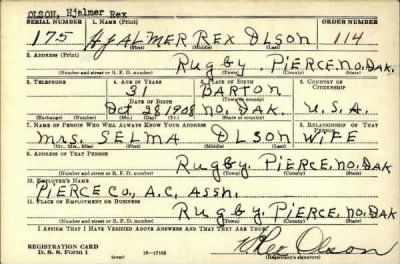 OLSON, Hjalmer Rex
SERIAL NUMBER 1. NAME (Print) ORDER NUMBER
175 HJALMER REX OLSON 114
(First) (Middle) (Last)
2. ADDRESS (Print)
Rugby. PIERCE. NO. DAK.
(Number and street or R. F. D. number) (Town) (County) (State)
3. TELEPHONE 4. AGE IN YEARS 5. PLACE OF BIRTH 6. COUNTRY OF CITIZENSHIP
31 BARTON
DATE OF BIRTH (Town or county)
Oct 28 1908 NO. DAK. U.S.A.
(Exchange) (Number) (Mo.) (Day) (Yr.) (State or country)
7. NAME OF PERSON WHO WILL ALWAYS KNOW YOUR ADDRESS 8. RELATIONSHIP OF THAT PERSON
Mrs. SELMA OLSON WIFE
(Mr., Mrs., Miss) (First) (Middle) (Last)
9. ADDRESS OF THAT PERSON
Rugby. PIERCE. NO. DAK
(Number and street or R. F. D. number) (Town) (County) (State)
10. EMPLOYER'S NAME
PIERCE CO., A.C, ASSN.
11. PLACE OF EMPLOYMENT OR BUSINESS
Rugby. PIERCE. NO. DAK
(Number and street or R. F. D. number) (Town) (County) (State)
I AFFIRM THAT I HAVE VERIFIED ABOVE ANSWERS AND THAT THEY ARE TRUE.
REGISTRATION CARD
D. S. S. Form 1 (over) 16—17105 Rex Olson
(Registrant's signature)